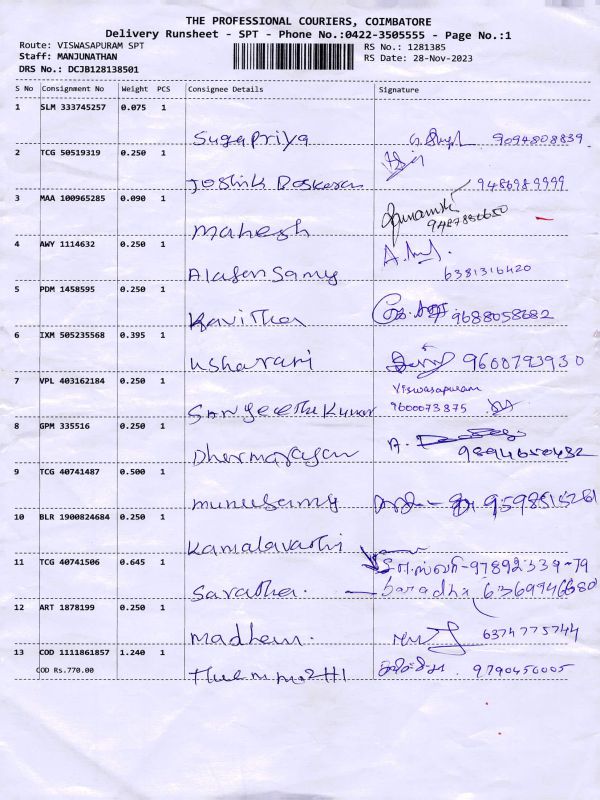 THE PROFESSIONAL COURIERS, COIMBATORE
Delivery Runsheet - SPT - Phone No.:0422-3505555 - Page No.:1
Route: VISWASAPURAM SPT
RS No.: 1281385
Staff: MANJUNATHAN
RS Date: 28-Nov-2023
DRS No.: DCJB128138501
S No Consignment No Weight PCS Consignee Details Signature
1 SLM 333745257 0.075 1
Sugapriya 9094808839
2 TCG 50519319 0.250 1
Joshik Baskaran 9486989999
3 MAA 100965285 0.090 1
Mahesh
4 AWY 1114632 0.250 1
6381316420
5 PDM 1458595 0.250 1
Kavitha 9688058682
6 IXM 505235568 0.395 1
Usharani 9600793930
7 VPL 403162184 0.250 1
Viswasapuram
Sangeetha Kumar 9600073875
8 GPM 335516 0.250 1
Dhermarajan 9894650482
9 TCG 40741487 0.500 1
Munusamy
10 BLR 1900824684 0.250 1
Kamalavathi
11 TCG 40741506 0.645 1
97892339-79
Saratha. 6369946680
12 ART 1878199 0.250 1
6374775744
13 COD 1111861857 1.240 1
COD Rs.770.00
9790456005